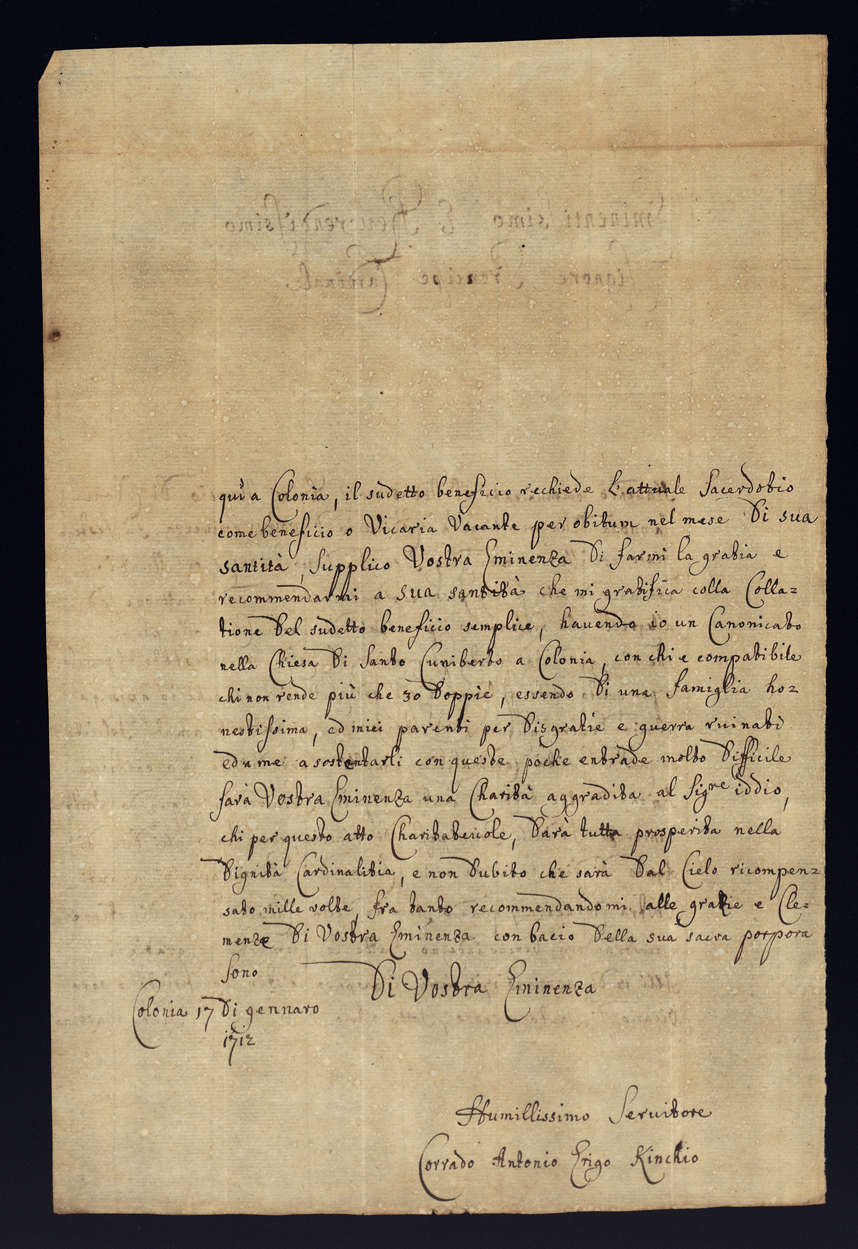 qui a Colonia, il sudetto beneficio rechiede L'attuale Sacerdotio
come beneficio o Vicaria Vacante per obitum nel mese Di sua
santità, Supplico Vostra Eminenza Di farmi la gratia e
recommendarmi a sua santità che mi gratifica colla Colla=
tione Del sudetto beneficio semplice, havendo io un Canonicato
nella Chiesa Di Santo Cuniberto a Colonia, con chi e compatibile
chi non rende più che 30 Doppie, essendo Di una famiglia ho=
nestissima, ed miei parenti per Disgratie e guerra ruinati
ed a me a sostentarli con queste poche entrade molto Difficile
farà Vostra Eminenza una Charità aggradita al Sig^re iddio,
chi per questo atto Charitatevole, Darà tutta prosperita nella
Dignità Cardinalitia, e non Dubito che sarà Dal Cielo ricompen=
sato mille volte, fra tanto recommandandomi alle gratie e Cle=
menze Di Vostra Eminenza con bacio Della sua sacra porpora
sono
Di Vostra Eminenza
Colonia 17 Di gennaro
1712
Humillissimo Servitore
Corrado Antonio Erigo Kinchio